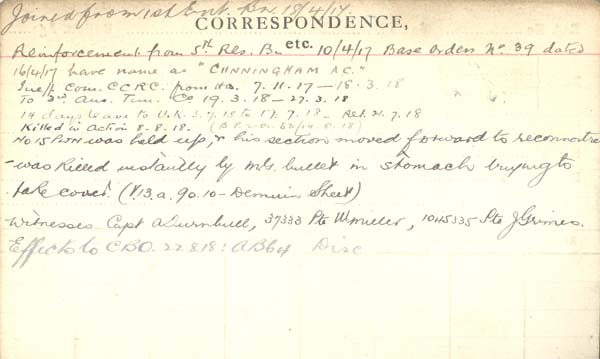 Joined from 1st Ent. Bn. 18/4/17.
CORRESPONDENCE,
etc.
Reinforcement from 5th Res. Bn 10/4/17 Base Orders No 39 dated
16/4/17 have name as "CUNNINGHAM A.C."
Com. C.C.R.C. from 7.11.17—18.3.18
To 3rd Aus. Tun. Co 19.3.18—27.3.18
14 days leave to U.K. 3.7.18 to 17.7.18 — Ret. 21.7.18
Killed in Action 8.8.18.
No 15 Pltn was held up, & his section moved forward to reconnoitre
—was Killed instantly by M.G. bullet in stomach trying to
take cover. (V.13.a.90.10—Demuin Sheet)
Witnesses Capt A Turnbull, 37333 Pte W Miller, 1045335 Pte J Grimes.
Effects to C.B.O. 22.8.18: AB64 Disc